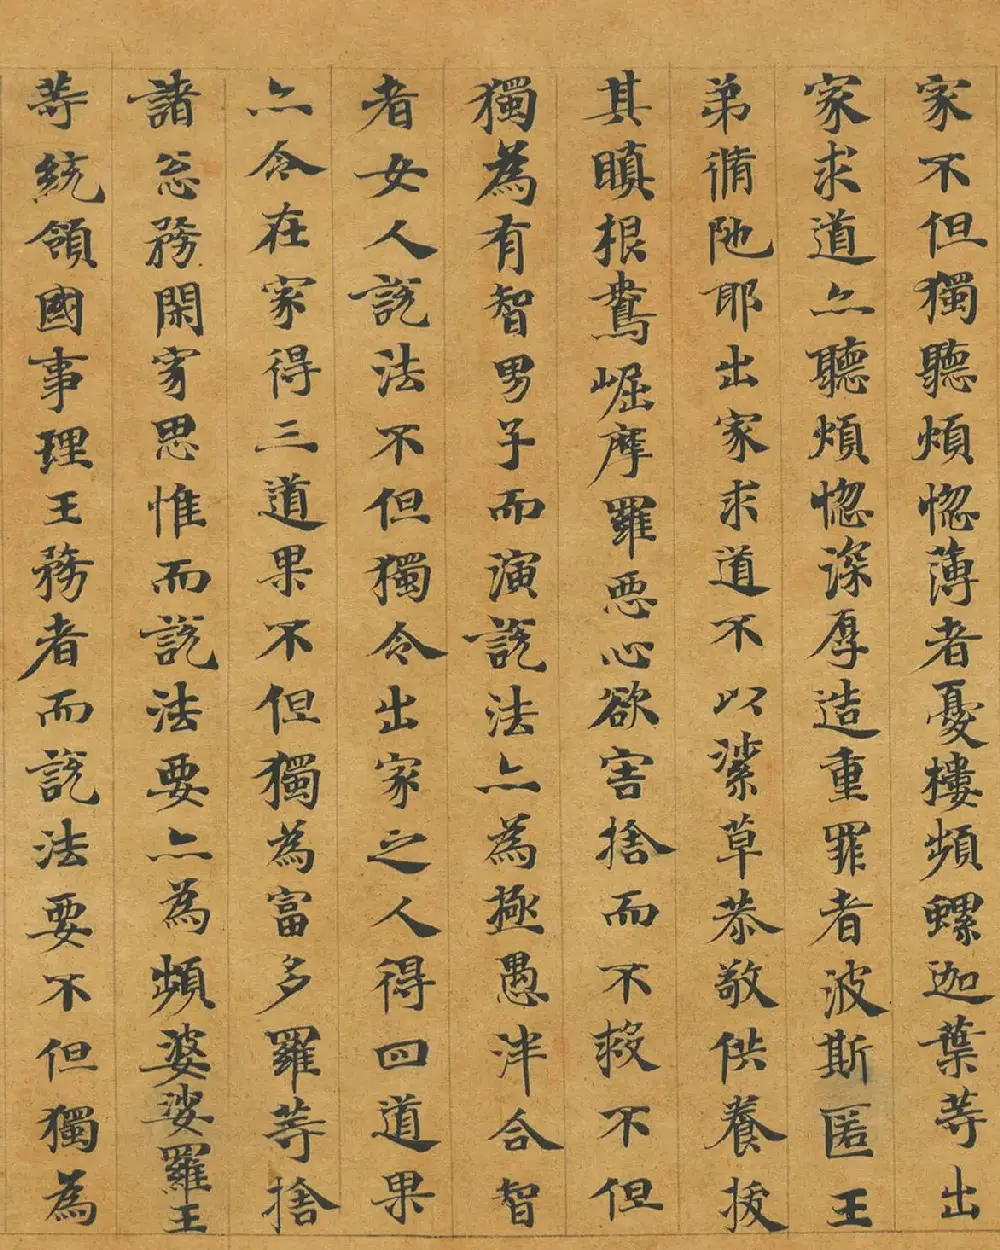 家不但獨聽煩惱薄者憂樓頻螺迦葉等出
家求道亦聽煩惱深厚造重罪者波斯匿王
弟脩陁耶出家求道不以草恭敬供養拔
其瞋根鴦崛摩羅惡心欲害捨而不救不但
獨為有智男子而演說法亦為極愚泮合智
者女人說法不但獨令出家之人得四道果
亦令在家得三道果不但獨為富多羅等捨
諸忩務閑寂思惟而說法要亦為頻婆娑羅王
等統領國事理王務者而說法要不但獨為